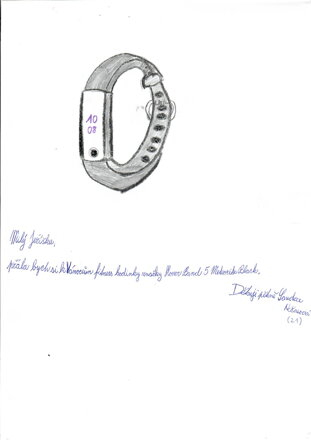 10
08
Milý Ježíšku,
přála bych si k Vánocům fitness hodinky značky Honor Band 5 Meteorite Black.
Děkuji pěkně Sandra
(21)